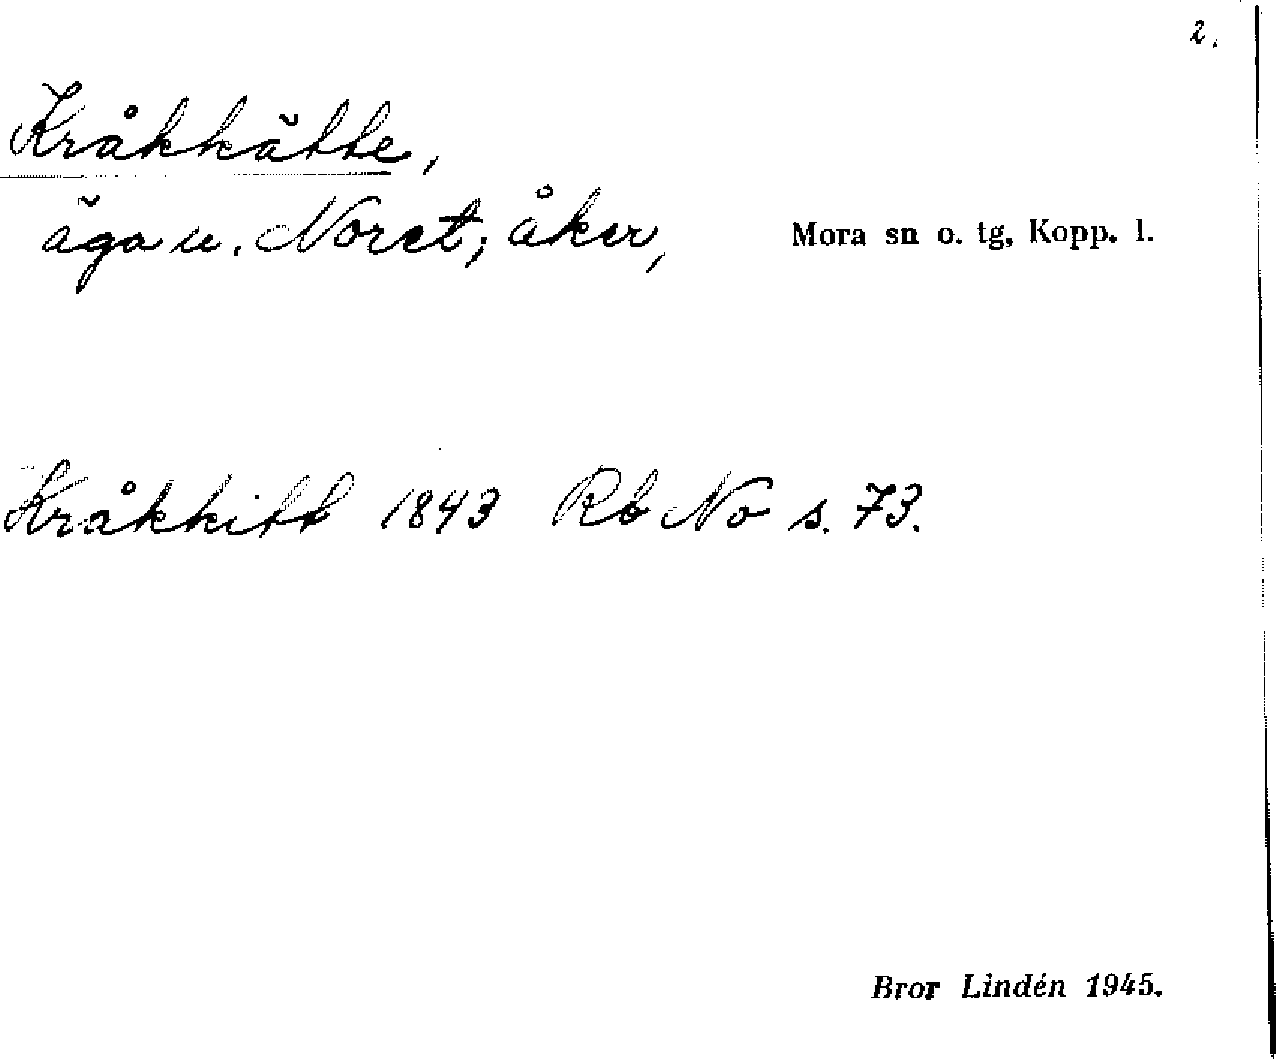 2.
Kråkkätte,
äga u. Noret; åker, Mora sn o. tg, Kopp. l.
Kråkkitt 1843 Rb No s. 73.
Bror Lindén 1945.